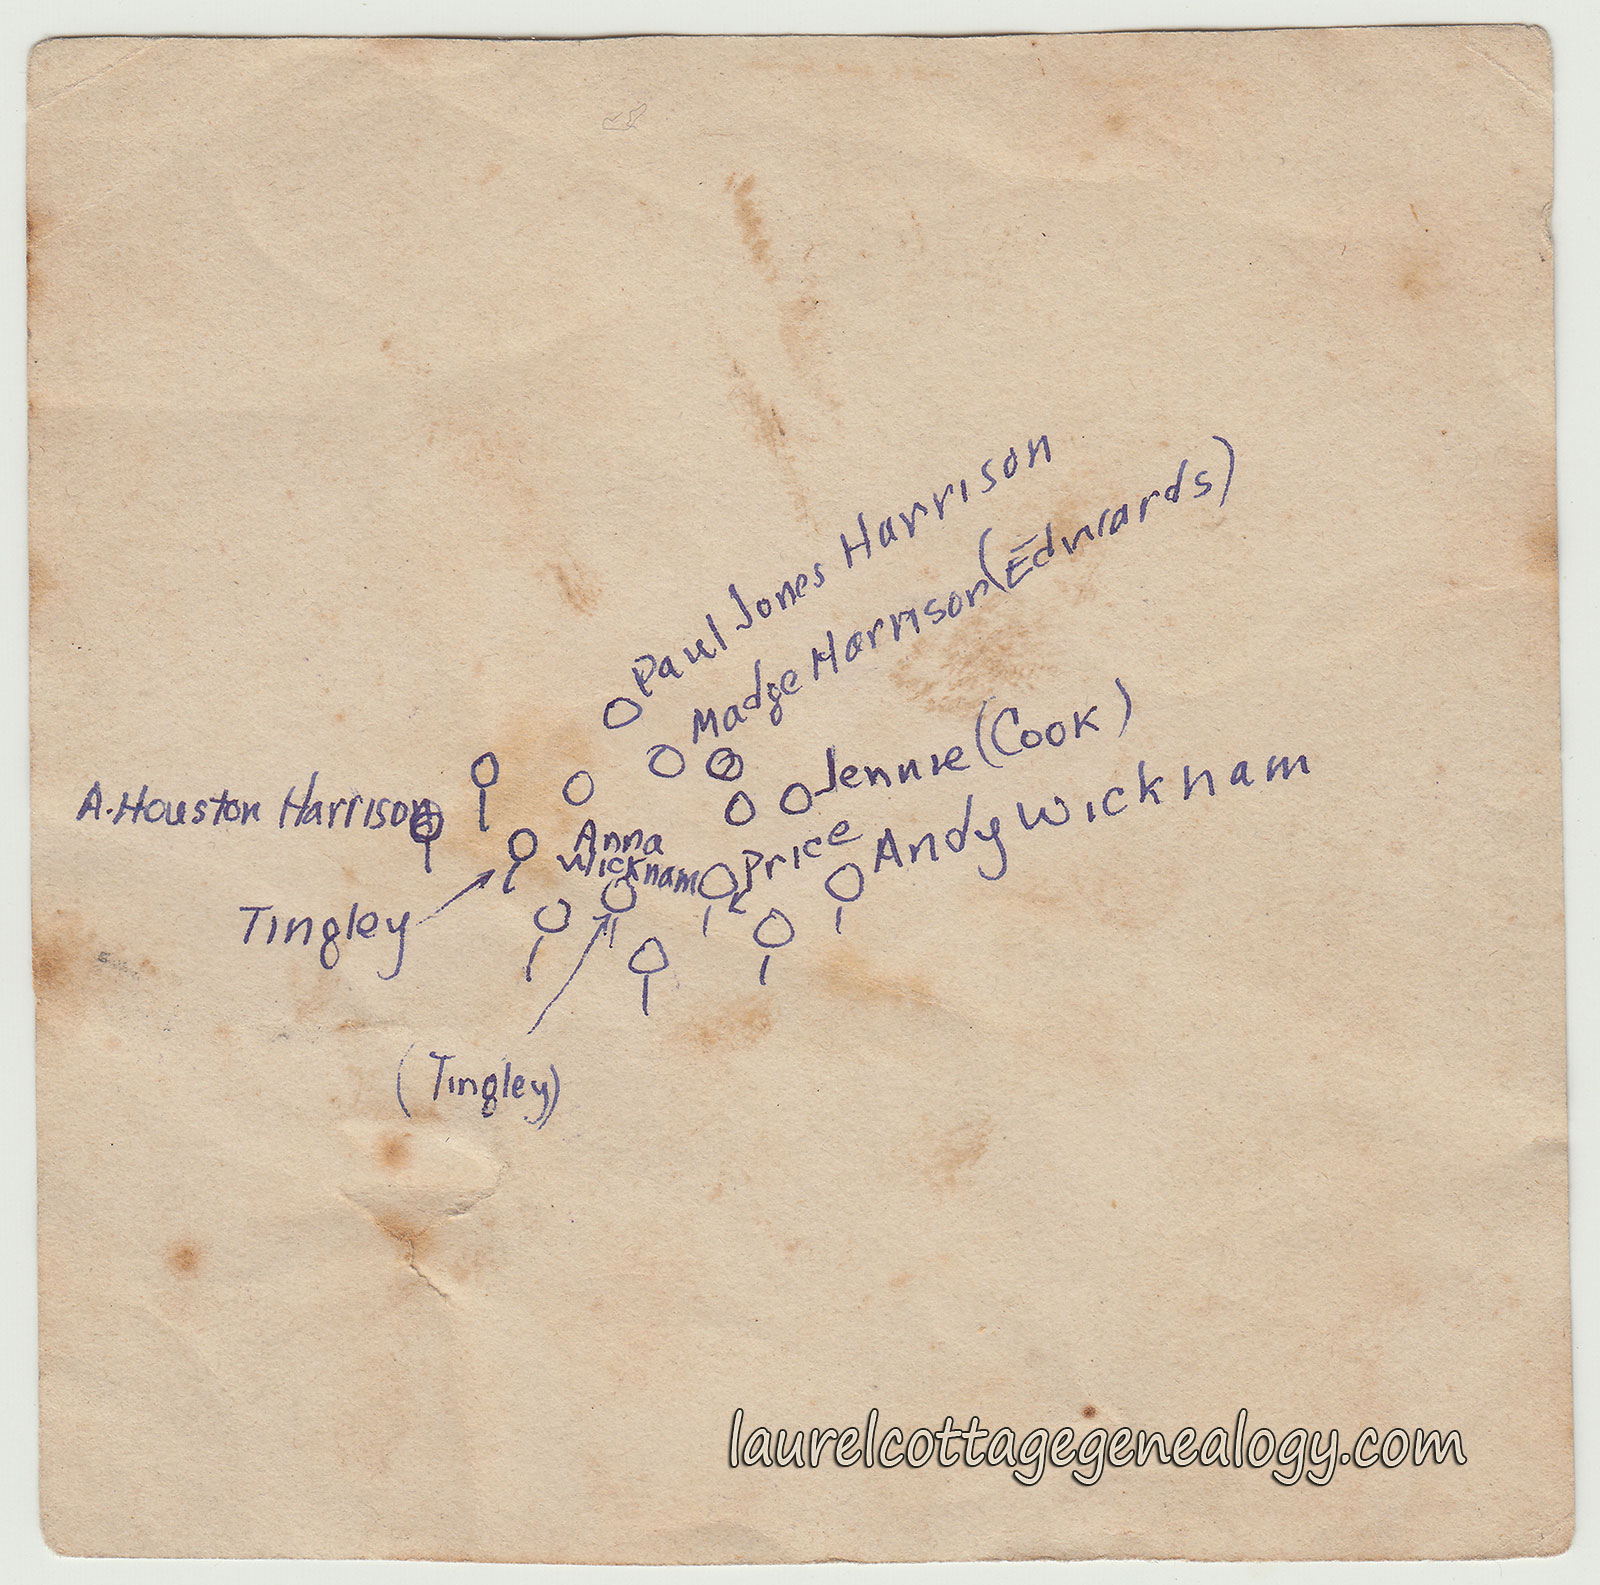 Paul Jones Harrison
Madge Harrison (Edwards)
Jennie (Cook)
A. Houston Harrison
Anna
Wicknam
Price
Andy Wicknam
Tingley
(Tingley)
laurelcottagegenealogy.com